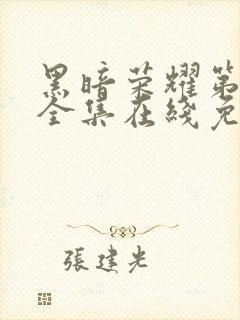 黑暗荣耀第
全集在线免
張建光